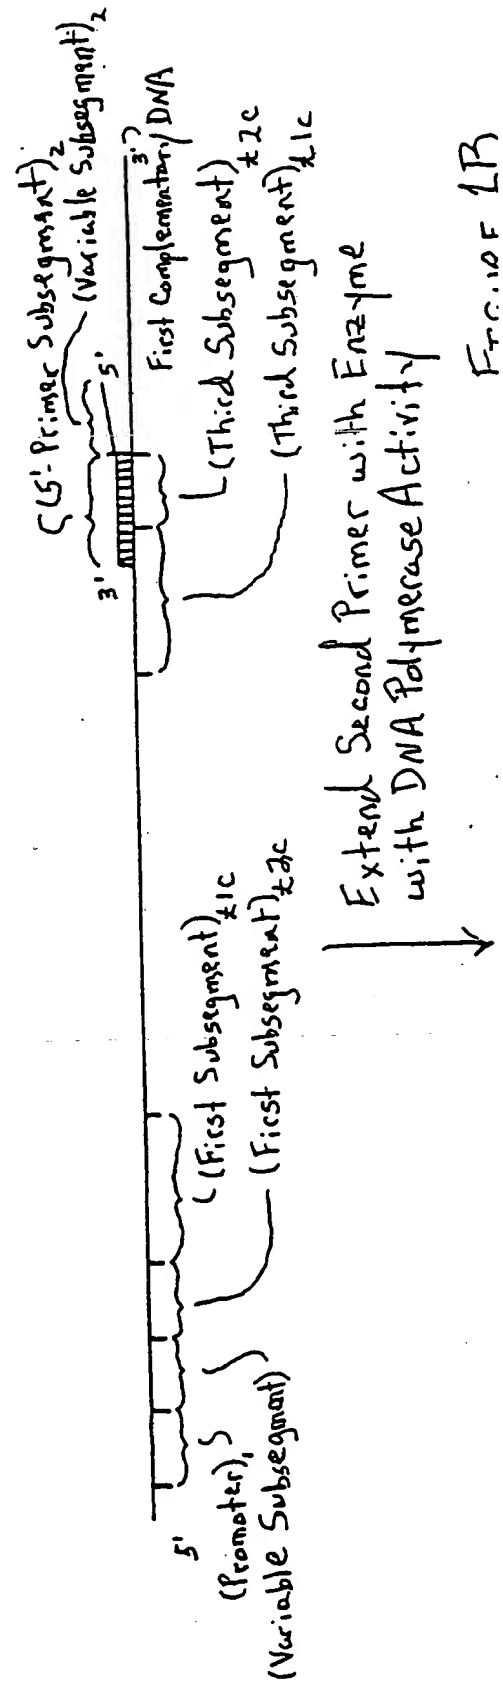 (5'-Primer Subsegment)2
(Variable Subsegment)2
3'
5'
3'
First Complementary DNA
(Third Subsegment)±2c
(Third Subsegment)±1c
(First Subsegment)±1c
(First Subsegment)±2c
5'
(Promoter)1
(Variable Subsegment)
Extend Second Primer with Enzyme
with DNA Polymerase Activity
FIGURE 1B